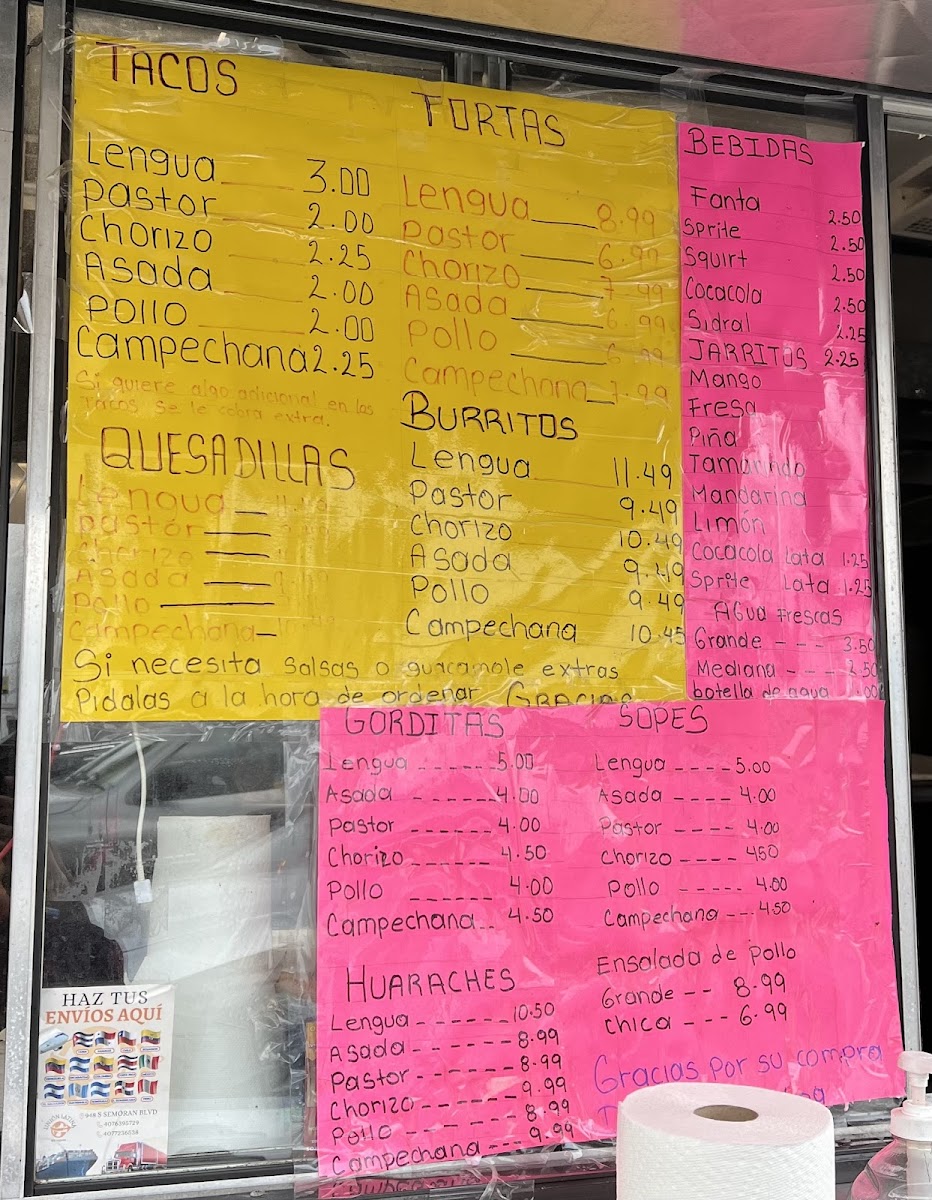 TACOS
Lengua 3.00
Pastor 2.00
Chorizo 2.25
Asada 2.00
Pollo 2.00
Campechana 2.25
Si quiere algo adicional en los
Tacos se le cobra extra.
QUESADILLAS
Lengua
Pastor
Chorizo
Asada
Pollo
Campechana
TORTAS
Lengua 8.99
Pastor 6.99
Chorizo 7.99
Asada 6.99
Pollo 6.99
Campechana 7.99
BURRITOS
Lengua 11.49
Pastor 9.49
Chorizo 10.49
Asada 9.49
Pollo 9.49
Campechana 10.45
Si necesita Salsas o guacamole extras
Pidalas a la hora de ordenar GRACIAS
BEBIDAS
Fanta 2.50
Sprite 2.50
Squirt 2.50
Cocacola 2.50
Sidral 2.25
JARRITOS 2.25
Mango
Fresa
Piña
Tamarindo
Mandarina
Limón
Cocacola Lata 1.25
Sprite Lata 1.25
AGua Frescas
Grande --- 3.50
Mediana --- 2.50
botella de agua
GORDITAS
Lengua ------ 5.00
Asada ------ 4.00
Pastor ------ 4.00
Chorizo ------ 4.50
Pollo ------ 4.00
Campechana -- 4.50
SOPES
Lengua ---- 5.00
Asada ---- 4.00
Pastor ---- 4.00
Chorizo ---- 450
Pollo ----- 4.00
Campechana --- 4.50
HUARACHES
Lengua ------ 10.50
Asada ------ 8.99
Pastor ------ 8.99
Chorizo ------ 9.99
Pollo ------ 8.99
Campechana --- 9.99
Ensalada de pollo
Grande -- 8.99
chica --- 6.99
Gracias Por su compra
HAZ TUS
ENVÍOS AQUÍ
UNION LATINA
948 S SEMORAN BLVD
4076395729
4077236538